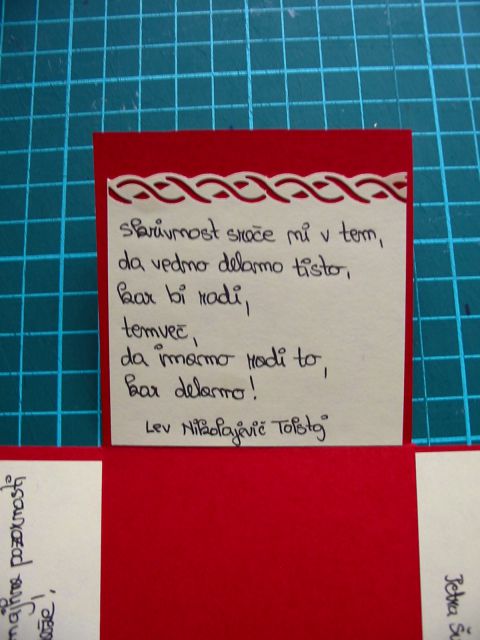 skrivnost sreče ni v tem,
da vedno delamo tisto,
kar bi radi,
temveč,
da imamo radi to,
kar delamo!
Lev Nikolajevič Tolstoj
pozornosti
Petra Š